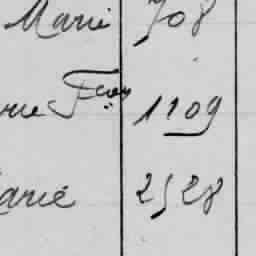 Marie 708
rue Fçois 1109
arie 2528